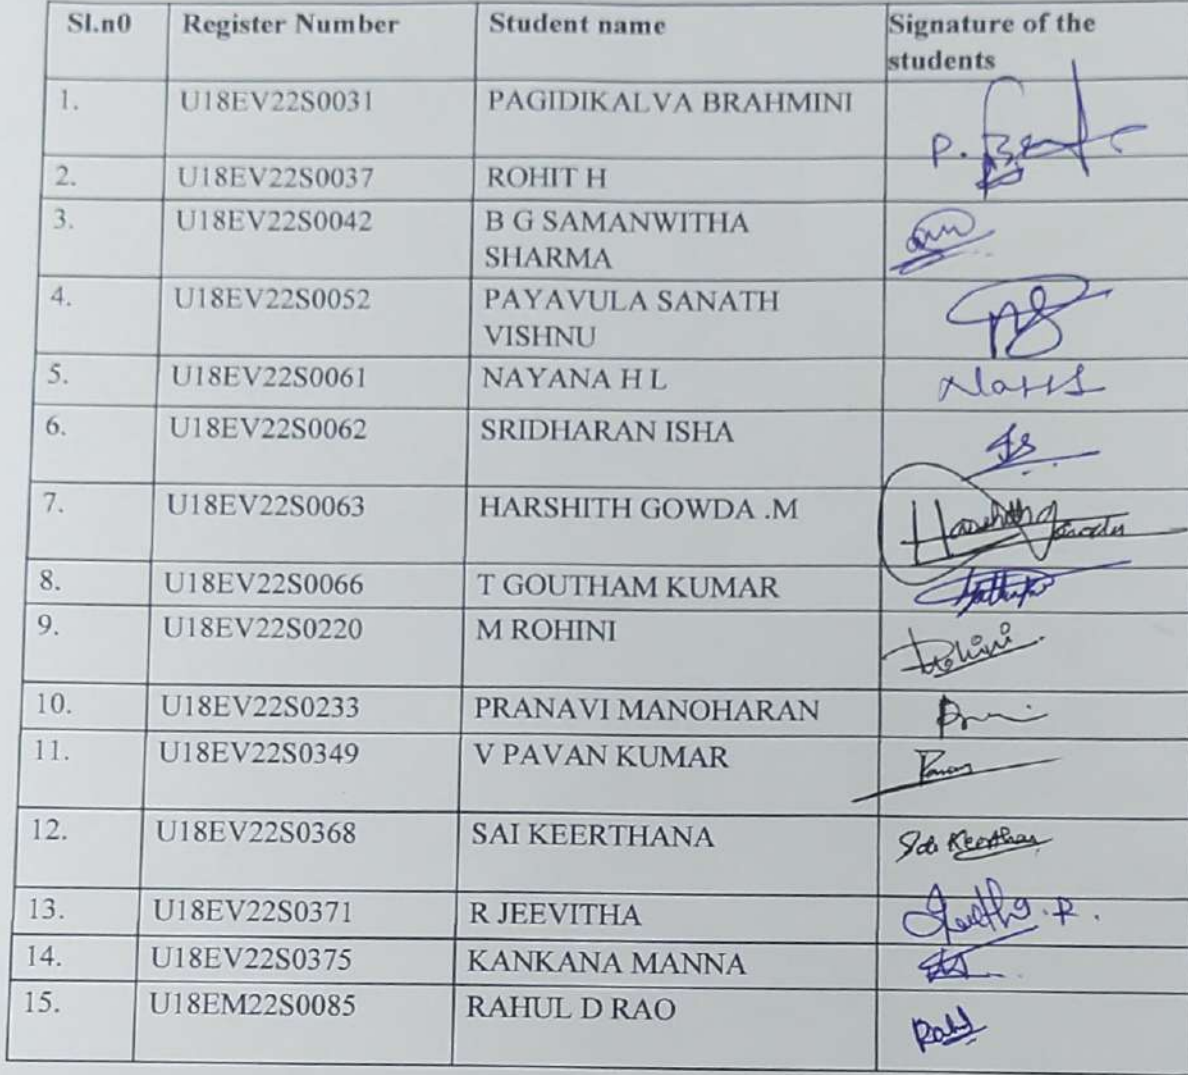 Sl.n0 Register Number Student name Signature of the
students
1. U18EV22S0031 PAGIDIKALVA BRAHMINI
P.
2. U18EV22S0037 ROHIT H
3. U18EV22S0042 B G SAMANWITHA
SHARMA
4. U18EV22S0052 PAYAVULA SANATH
VISHNU
5. U18EV22S0061 NAYANA H L
6. U18EV22S0062 SRIDHARAN ISHA
7. U18EV22S0063 HARSHITH GOWDA .M
8. U18EV22S0066 T GOUTHAM KUMAR
9. U18EV22S0220 M ROHINI Rohini.
10. U18EV22S0233 PRANAVI MANOHARAN
11. U18EV22S0349 V PAVAN KUMAR
12. U18EV22S0368 SAI KEERTHANA
13. U18EV22S0371 R JEEVITHA
14. U18EV22S0375 KANKANA MANNA
15. U18EM22S0085 RAHUL D RAO